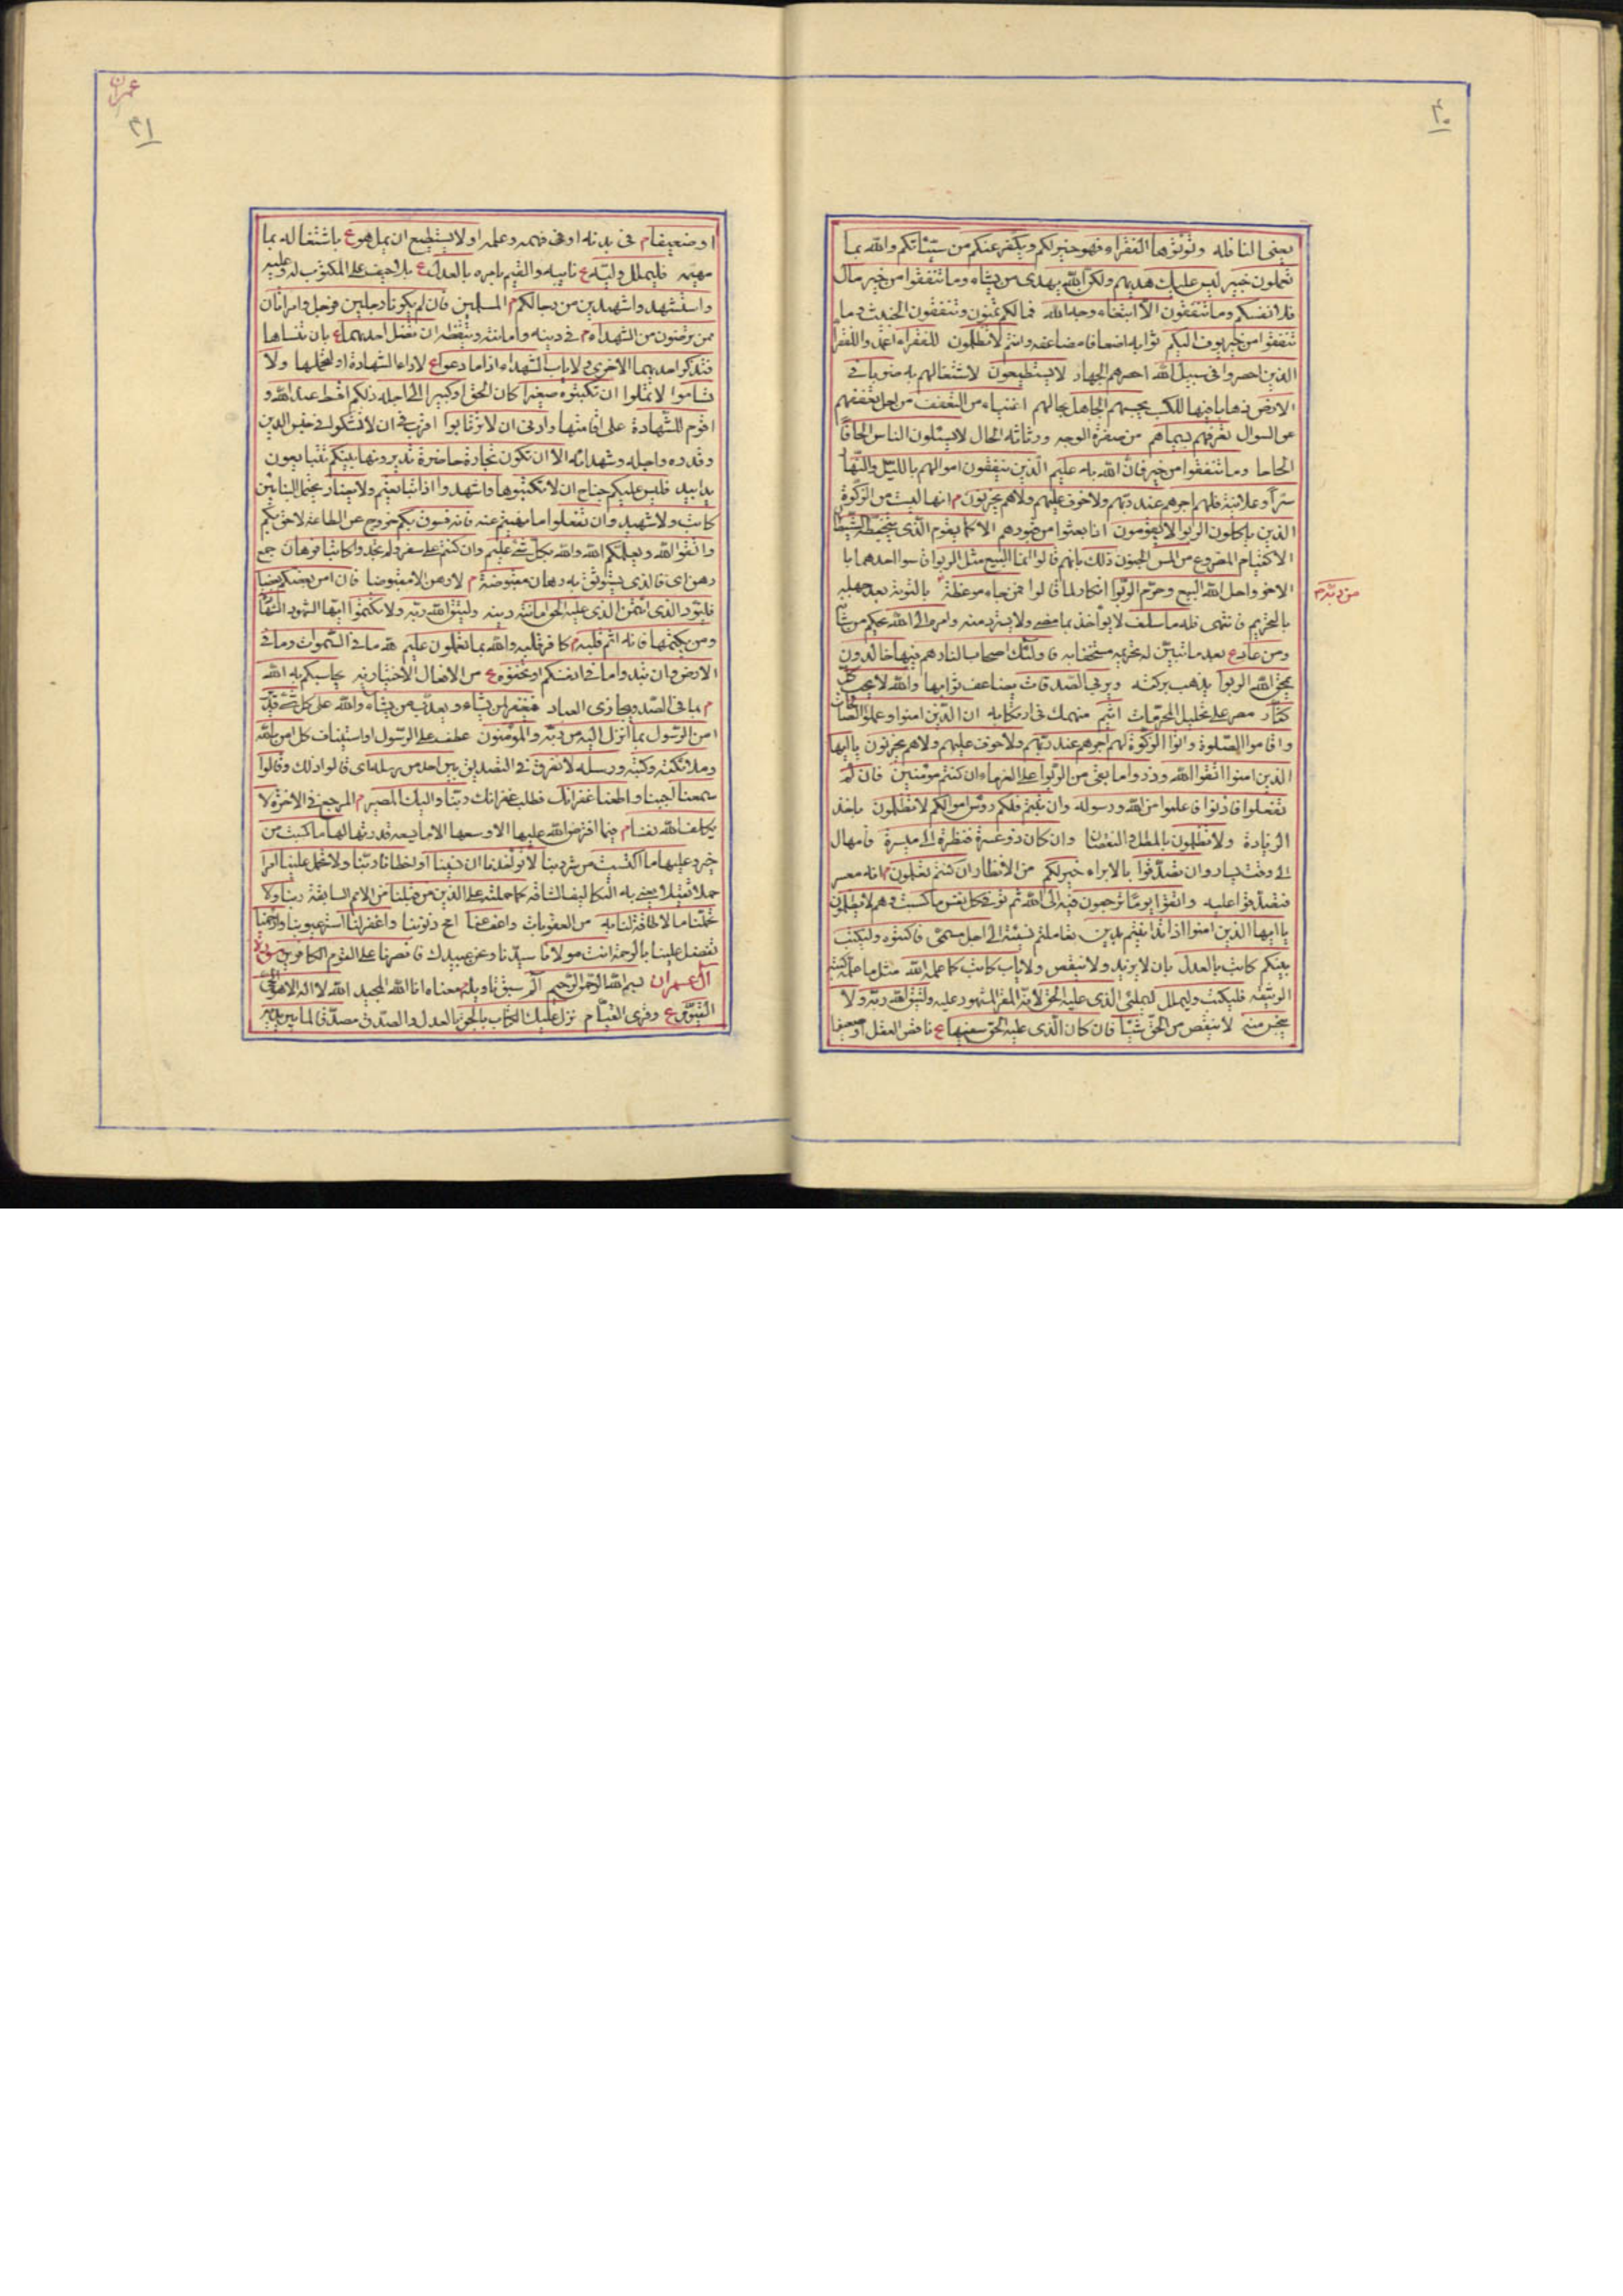 ۴۰
يعنى النافلة وتؤتوها الفقراء فهو خير لكم ويكفر عنكم من سيئاتكم والله بما
تعملون خبير ليس عليك هديهم ولكن الله يهدى من يشاء وما تنفقوا من خير مال
فلانفسكم وما تنفقون الا ابتغاء وجه الله فما لكم تمنون وتنفقون الخبيث وما
تنفقوا من خير يوف اليكم ثوابه اضعافا مضاعفه وانتم لا تظلمون للفقراء اعمدوا للفقرا
الذين احصروا فى سبيل الله احصرهم الجهاد لا يستطيعون لاشتغالهم به ضربا فى
الارض ذهابا فيها للكسب يحسبهم الجاهل بحالهم اغنياء من التعفف من اجل تعففهم
عن السوال تعرفهم بسيماهم من صفرة الوجه ورثاثة الحال لا يسئلون الناس الحافا
الحاحا وما تنفقوا من خير فان الله به عليم الذين ينفقون اموالهم بالليل والنهار
سرا وعلانية فلهم اجرهم عند ربهم ولا خوف عليهم ولا هم يحزنون م انها ليست من الزكوة
الذين ياكلون الربوا لا يقومون اذا بعثوا من قبورهم الا كما يقوم الذى يتخبطه الشيطان
الا كقيام المصروع من المس الجنون ذلك بانهم قالوا انما البيع مثل الربوا قاسوا احدهما با
الاخر واحل الله البيع وحرم الربوا انكار لما قالوا فمن جاءه موعظة بالتوبة بعد جهله
من ربه م
بالتحريم فانتهى فله ما سلف لا يواخذ بما مضى ولا يسترد منه وامره الى الله يحكم من شانه
ومن عاد ع بعد ما تبين له تحريمه مستخفا به فاولئك اصحاب النار هم فيها خالدون
يمحق الله الربوا يذهب بركته ويربى الصدقات يضاعف ثوابها والله لا يحب كل
كفار مصر على تحليل المحرمات اثيم منهمك فى ارتكابه ان الذين امنوا وعملوا الصالحات
واقاموا الصلوة واتوا الزكوة لهم اجرهم عند ربهم ولا خوف عليهم ولا هم يحزنون يا ايها
الذين امنوا اتقوا الله وذروا ما بقى من الربوا على الغرماء ان كنتم مومنين فان لم
تفعلوا فاذنوا فاعلموا من الله ورسوله وان تبتم فلكم رؤس اموالكم لا تظلمون باخذ
الزيادة ولا تظلمون بالمطل والنقصان وان كان ذو عسرة فنظرة الى ميسرة فامهال
الى وقت يسار وان تصدقوا بالابراء خير لكم من الانظار ان كنتم تعلمون م انه معسر
فتصدقوا عليه واتقوا يوما ترجعون فيه الى الله ثم توفى كل نفس ما كسبت وهم لا يظلمون
يا ايها الذين امنوا اذا تداينتم بدين تعاملتم نسيئة الى اجل مسمى فاكتبوه وليكتب
بينكم كاتب بالعدل بان لا يزيد ولا ينقص ولا ياب كاتب كما علمه الله مثل ما علمه كتبة
الوثيقه فليكتب وليملل ليملى الذى عليه الحق لانه المقر المشهود عليه وليتق الله ربه ولا
يبخس منه لا ينقص من الحق شيئا فان كان الذى عليه الحق سفيها ع ناقص العقل او ضعيفا
عمران
۴۱
او ضعيفا م فى بدنه او فى فهمه وعلمه او لا يستطيع ان يمل هو ع باشتغاله بما
مهمه فليملل وليه ع نايبه والقيم بامره بالعدل ع بلا حيف على المكتوب له وعليه
واستشهدوا شهيدين من رجالكم م المسلمين فان لم يكونا رجلين فرجل وامراتان
ممن ترضون من الشهداء م فى دينه وامانته وتيقظه ان تضل احديهما ع بان تنساها
فتذكر احديهما الاخرى ولا ياب الشهداء اذا ما دعوا ع لاداء الشهادة او لتحملها ولا
تساموا لا تملوا ان تكتبوه صغيرا كان الحق او كبيرا الى اجله ذلكم اقسط عند الله و
اقوم للشهادة على اقامتها وادنى ان لا ترتابوا اقرب فى ان لا تشكوا فى جنس الدين
وقدره واجله وشهدائه الا ان تكون تجارة حاضرة تديرونها بينكم تتبايعون
يدا بيد فليس عليكم جناح ان لا تكتبوها واشهدوا اذا تبايعتم ولا يضار يحتمل البنائين
كاتب ولا شهيد وان تفعلوا ما نهيتم عنه فانه فسوق بكم خروج عن الطاعة لاحق بكم
واتقوا الله ويعلمكم الله والله بكل شئ عليم وان كنتم على سفر ولم تجدوا كاتبا فرهان جمع
رهن اى فالذى يستوثق به رهان مقبوضة م لا رهن الا مقبوضا فان امن بعضكم بعضا
فليؤد الذى ائتمن الذى عليه الحق امانته دينه وليتق الله ربه ولا تكتموا ايها الشهود الشهادة
ومن يكتمها فانه اثم قلبه م كافر قلبه والله بما تعملون عليم لله ما فى السموات وما فى
الارض وان تبدوا ما فى انفسكم او تخفوه ع من الافعال الاختياريه يحاسبكم به الله
م بما فى الصدور يجازى العباد فيغفر لمن يشاء ويعذب من يشاء والله على كل شئ قدير
امن الرسول بما انزل اليه من ربه والمؤمنون عطف على الرسول او استيناف كل امن بالله
وملائكته وكتبه ورسله لا نفرق فى التصديق بين احد من رسله اى قالوا ذلك وقالوا
سمعنا اجبنا واطعنا غفرانك فطلب غفرانك ربنا واليك المصير م المرجع فى الاخرة لا
يكلف الله نفسا م فيما افترض الله عليها الا وسعها الا ما يسعه قدرتها لها ما كسبت من
خير وعليها ما اكتسبت من شر ربنا لا تؤاخذنا ان نسينا او اخطانا ربنا ولا تحمل علينا اصرا
حملا ثقيلا يعنى به التكاليف الشاقه كما حملته على الذين من قبلنا من الامم السابقة ربنا ولا
تحملنا ما لا طاقة لنا به من العقوبات واعف عنا امح ذنوبنا واغفر لنا استر عيوبنا وارحمنا
تفضل علينا بالرحمة انت مولانا سيدنا ونحن عبيدك فانصرنا على القوم الكافرين سورة
ال عمران بسم الله الرحمن الرحيم الم سبق تاويله م معناه انا الله المجيد الله لا اله الا هو الحى
القيوم ع وقرى القيام نزل عليك الكتاب بالحق بالعدل والصدق مصدقا لما بين يديه